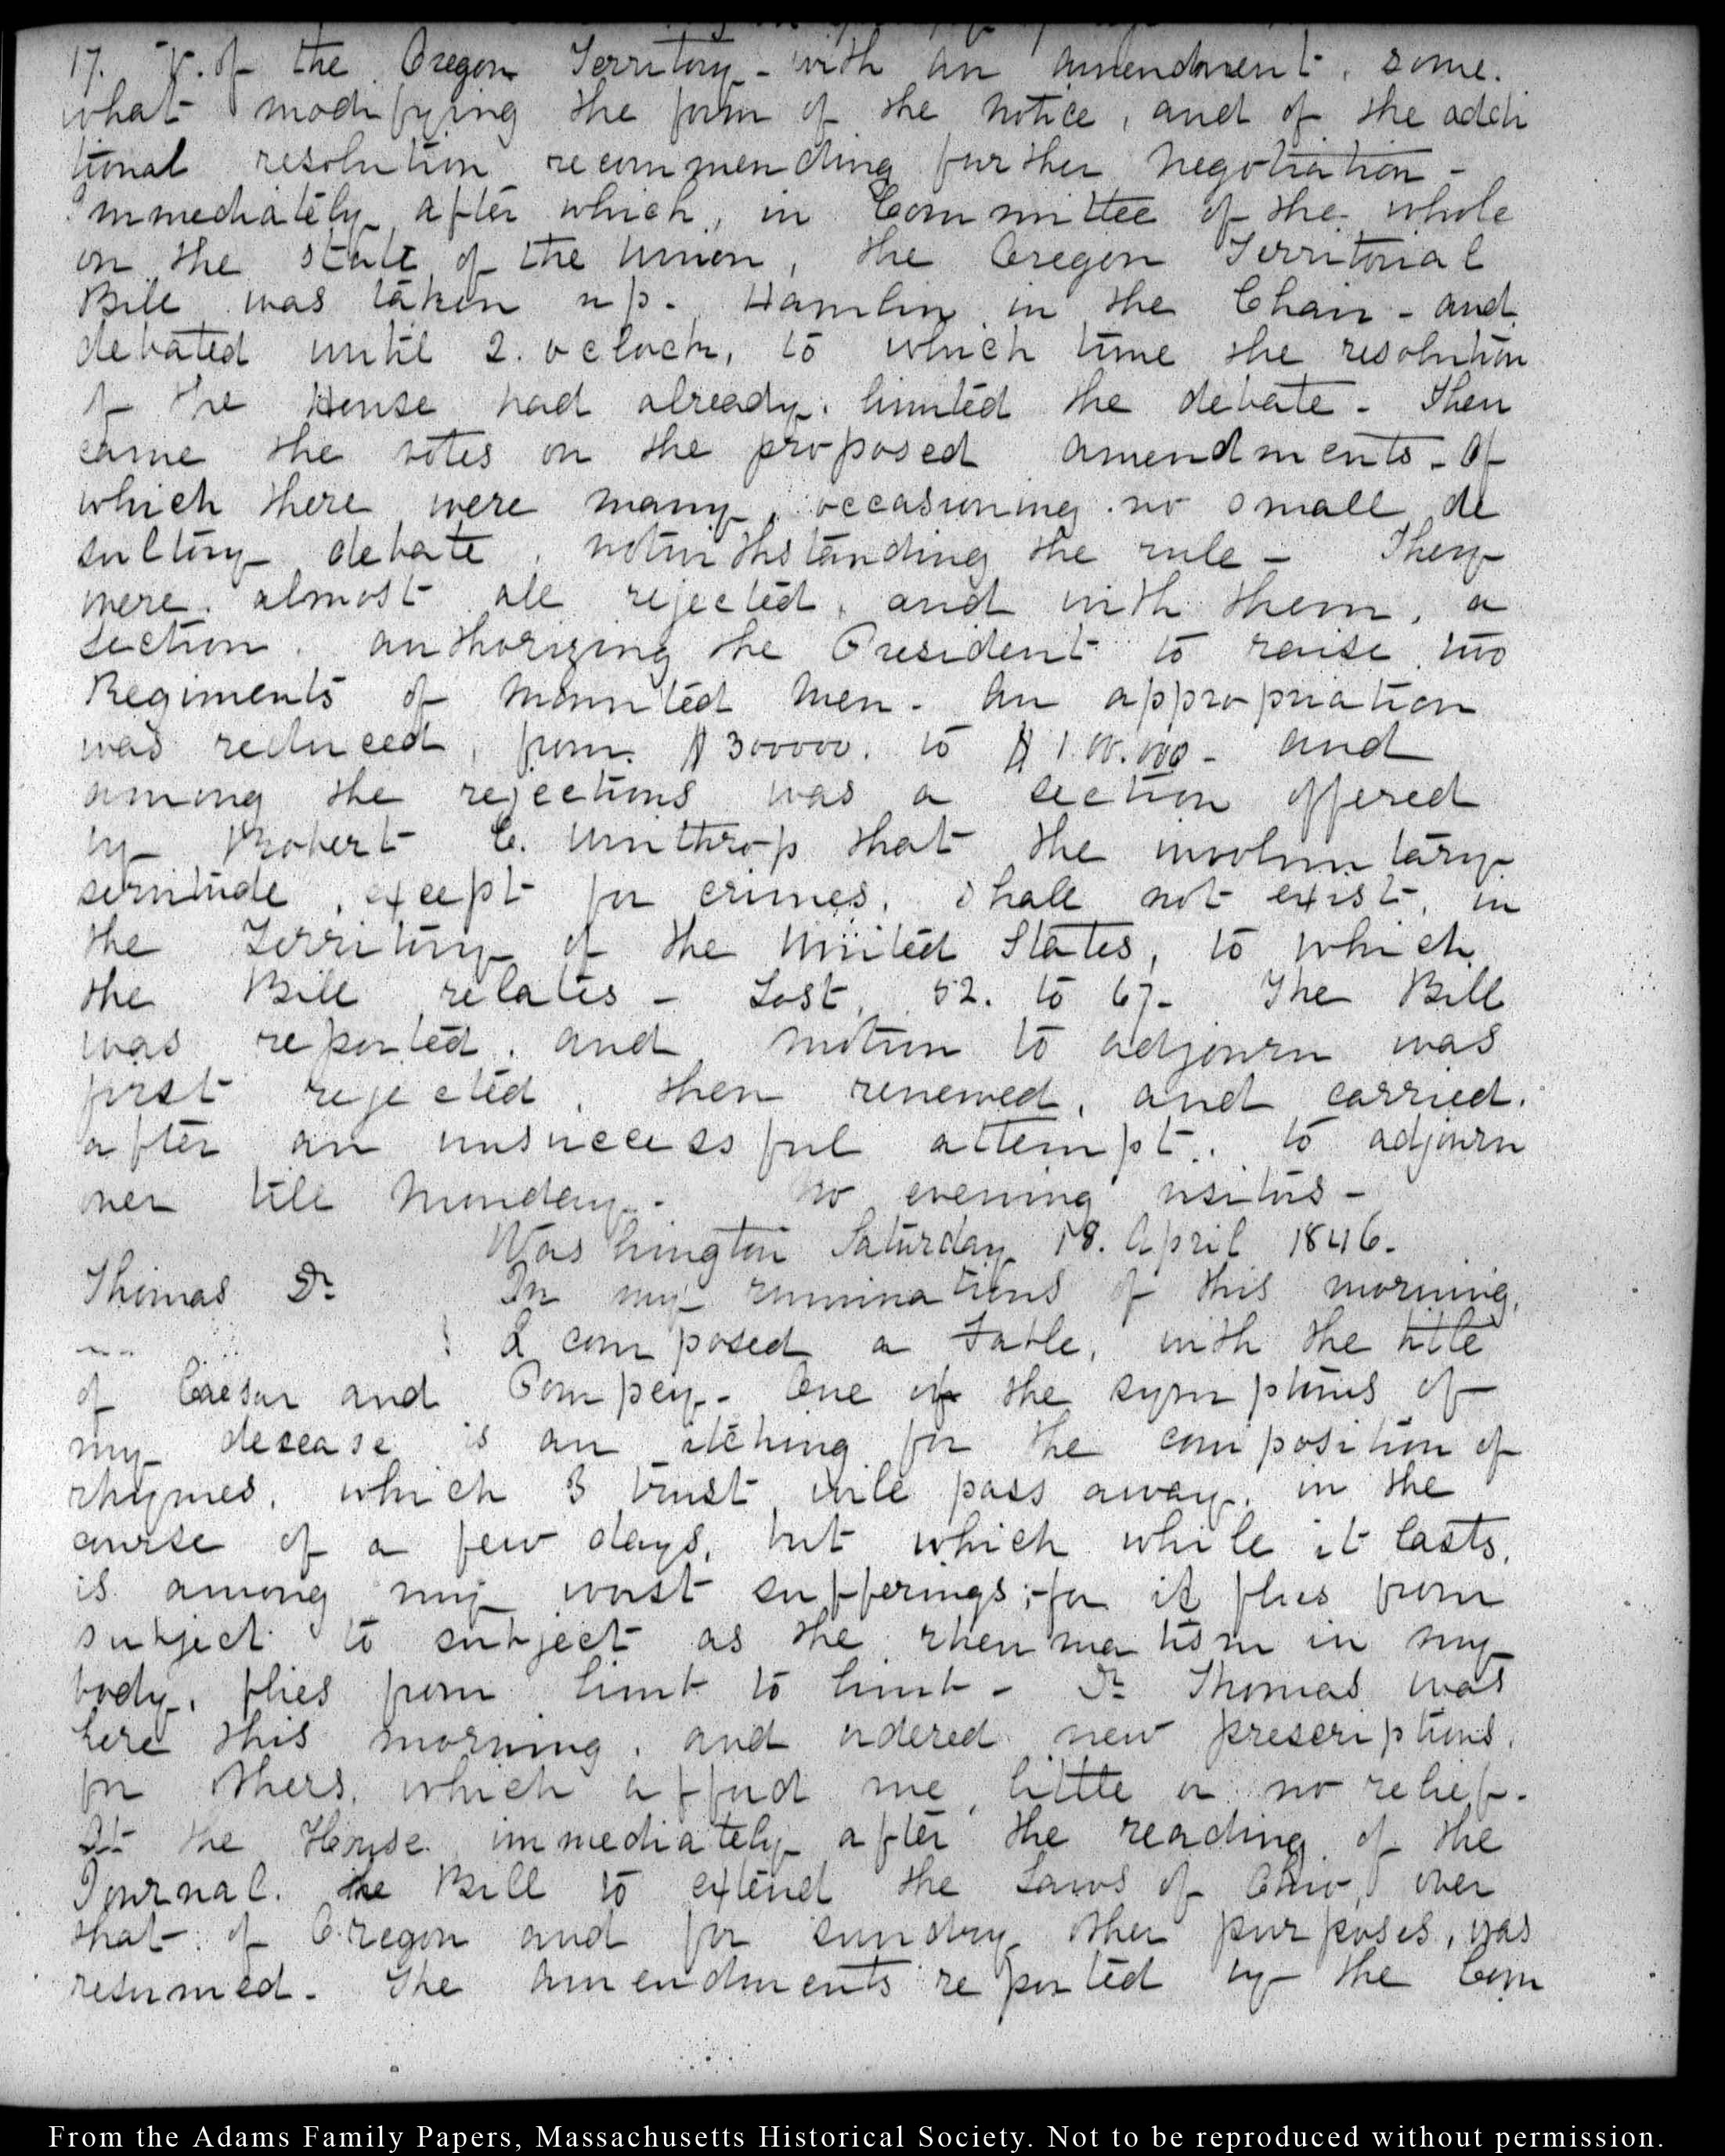 17. V. of the Oregon Territory - with an amendment, some.
what modifying the form of the notice, and of the addi
tional resolution recommending further negotiation -
Immediately after which, in Committee of the whole
on the state of the Union, the Oregon Territorial
Bill was taken up. Hamlin in the Chair - and
debated until 2. oclock, to which time the resolution
of the House had already limited the debate - Then
came the votes on the proposed amendments - Of
which there were many, occasioning no small de
sultory debate, notwithstanding the rule - They
were almost all rejected, and with them, a
section authorizing the President to raise two
Regiments of mounted men - An appropriation
was reduced, from $300000. to $100.000 - and
among the rejections was a section offered
by Robert C. Winthrop that the involuntary
servitude, except for crimes, shall not exist, in
the Territory of the United States, to which
the Bill relates - Lost, 52. to 67 - The Bill
was reported, and motion to adjourn was
first rejected, then renewed, and carried.
after an unsuccessful attempt, to adjourn
over till Monday - No evening visitors -
Washington Saturday 18. April 1846.
Thomas Dr In my ruminations of this morning,
I composed a Fable, with the title
of Caesar and Pompey - One of the symptoms of
my desease is an itching for the composition of
rhymes, which I trust will pass away, in the
course of a few days, but which while it lasts,
is among my worst sufferings; for it flies from
subject to subject as the rheumatism in my
body, flies from limb to limb - Dr Thomas was
here this morning, and ordered new prescriptions,
for others, which afford me, little or no relief -
At the House immediately after the reading of the
Journal. the Bill to extend the Laws of Ohio, over
that of Oregon and for sundry other purposes, was
resumed - The amendments reported by the Com
From the Adams Family Papers, Massachusetts Historical Society. Not to be reproduced without permission.